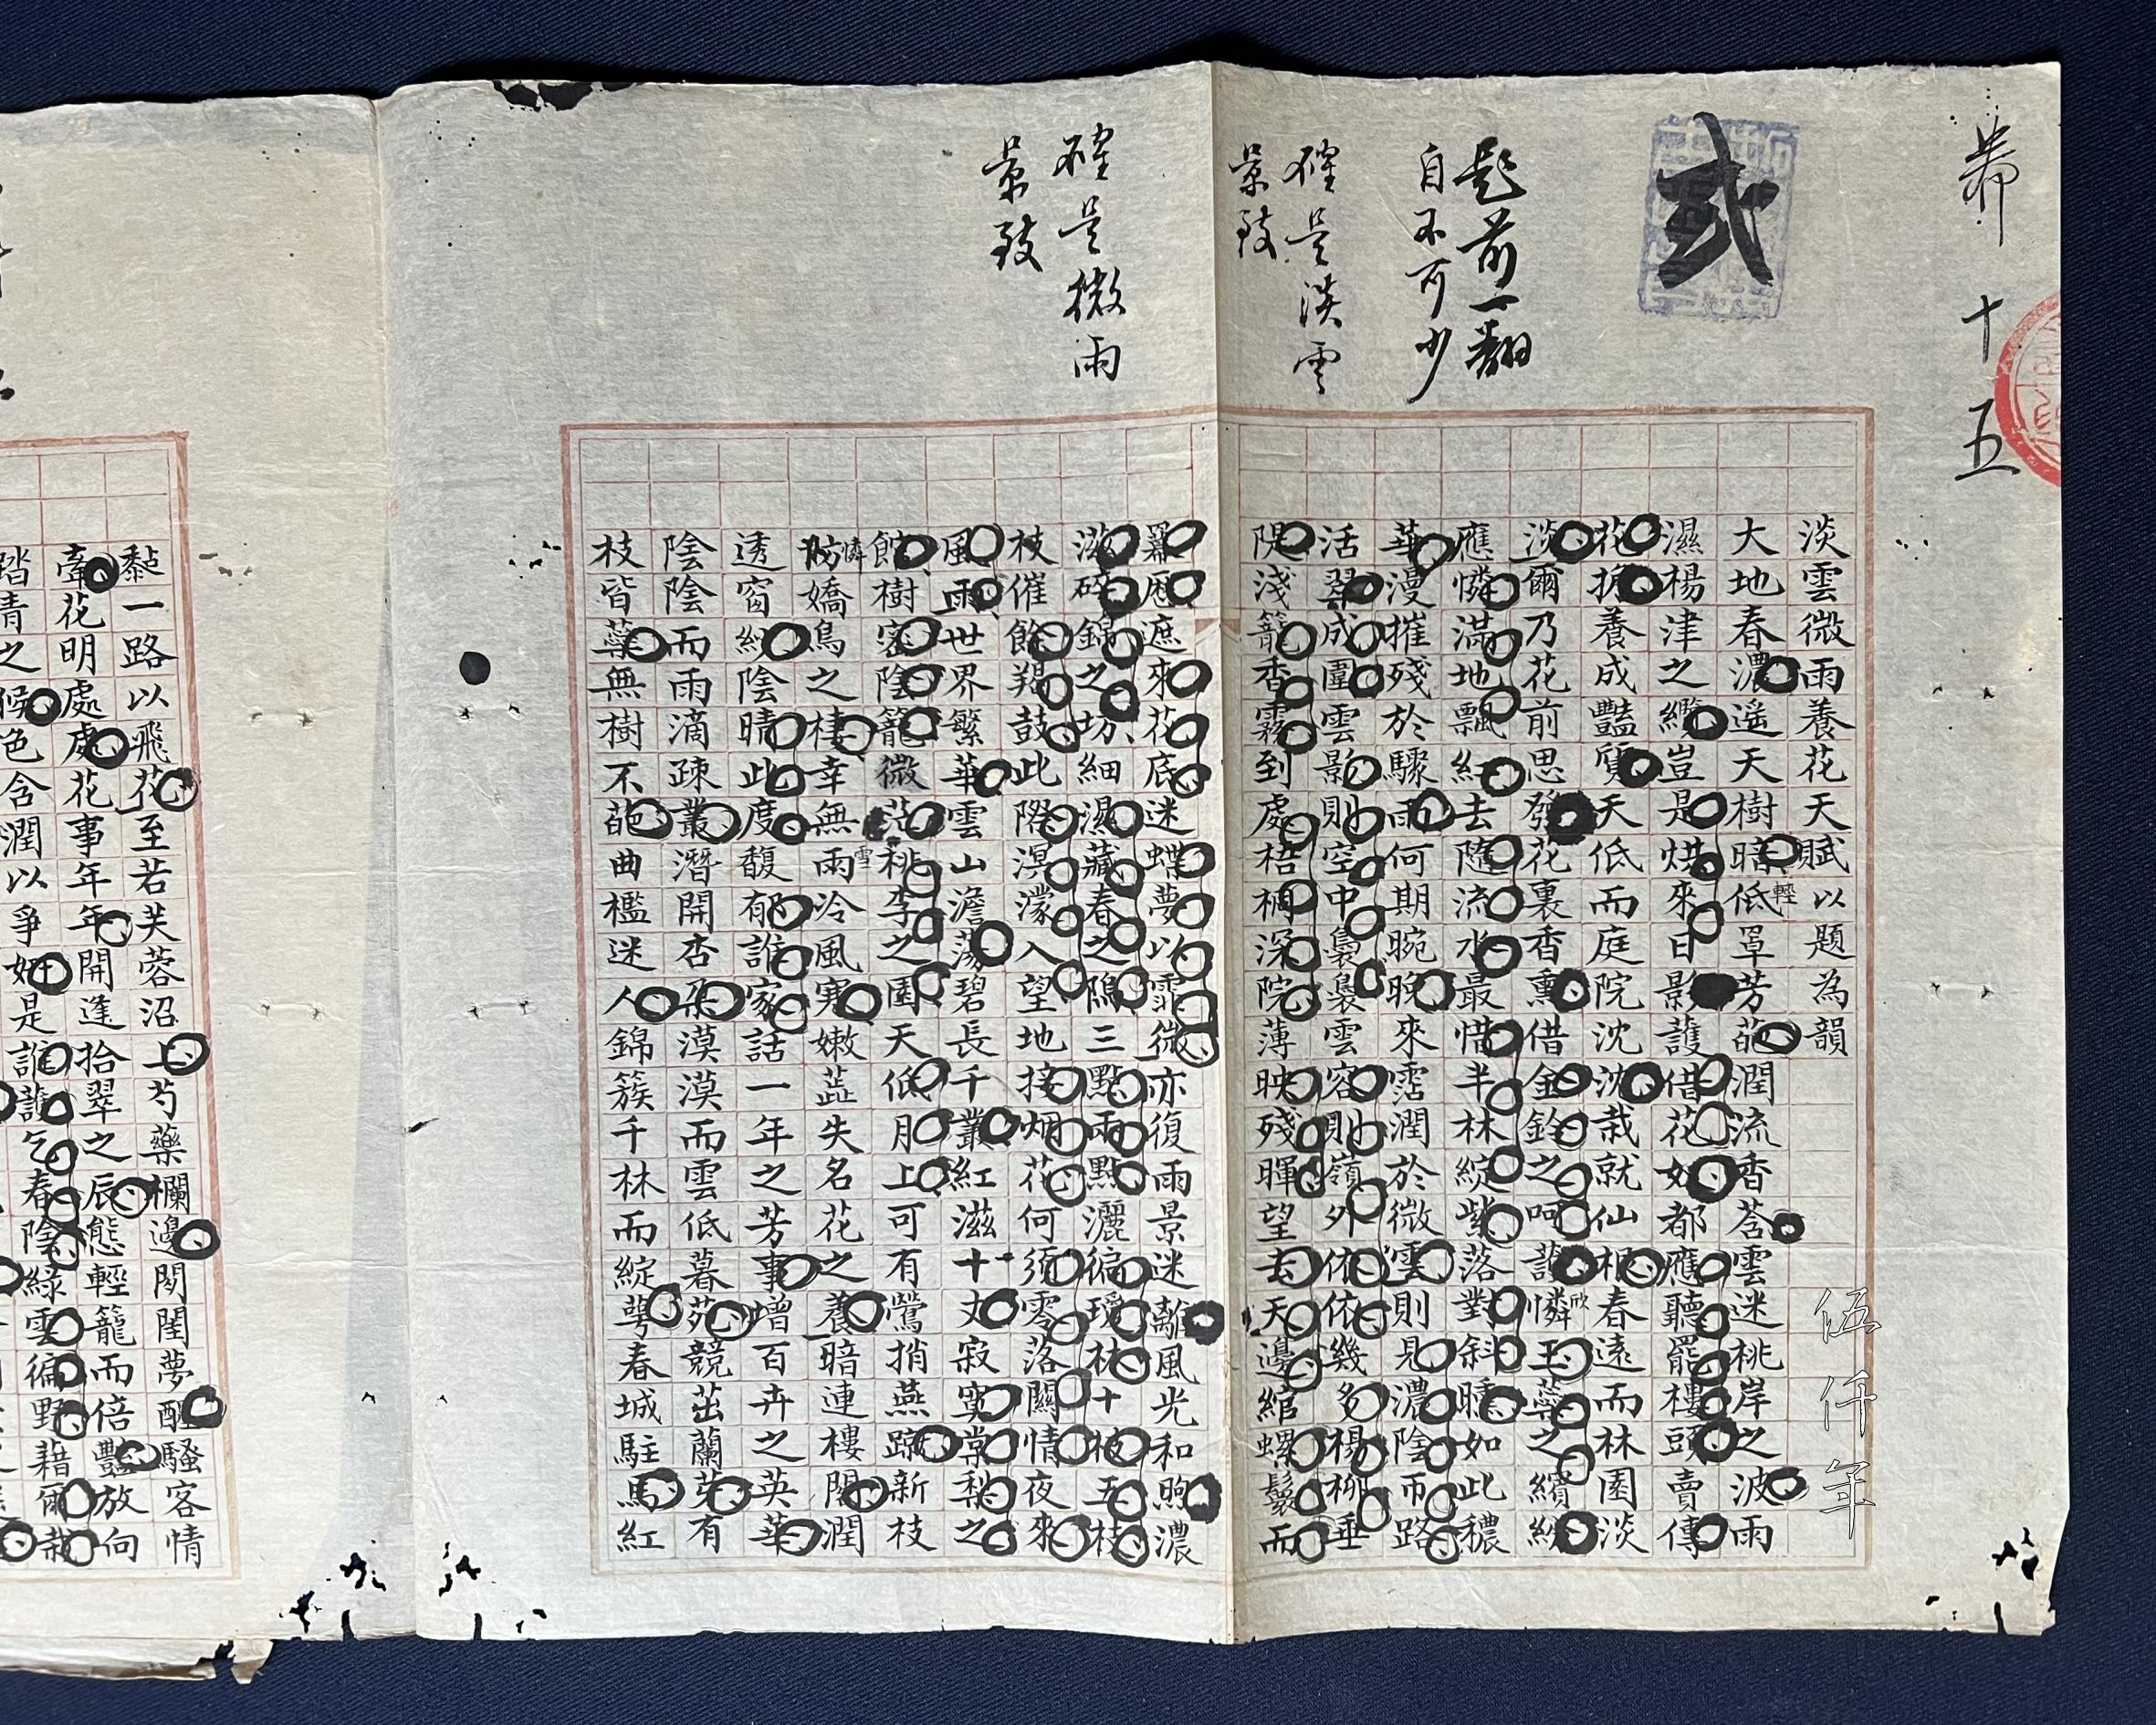 十五
贰
題前一翻
自不可少
確是淡雲
景致
確是微雨
景致
淡雲微雨養花天賦以題為韻
大地春濃遥天樹暗低輕罩芳葩潤流香菭雲迷桃岸之波雨
濕楊津之纜豈是烘來日影護借花如都應聽罷樓頭賣傳
花擔養成豔質天低而庭院沈沈栽就仙根春遠而林園淡
淡爾乃花前思發花裏香熏借金鈴之呵護憐欣玉蕊之繽紛
應憐滿地飄紅去隨流水最惜半林綻紫落對斜曛如此穠
華漫摧殘於驟雨何期晼晚來霑潤於微雲則見濃陰帀路
活翠成圍雲影則空中裊裊雲容則嶺外依依幾多楊柳垂
隄淺籠香霧到處梧桐深院薄映殘暉望去天邊綰螺鬟而
羃䍥遮來花底迷蝶夢以霏微亦復雨景迷離風光和煦濃
滋碎錦之坊細濕藏春之隖三點兩點灑徧瑗林十枝五枝
枝催餘羯鼓此際溟濛入望地接烟花何須零落關情夜來
風雨世界繁華雲山澹蕩碧長千叢紅滋十丈寂寞棠梨之
館樹密陰籠微茫桃雪李之園天低月上可有鶯捎燕蹴新枝
防憐嬌鳥之棲幸無雨泠風寒嫩蕊失名花之養暗連樓閣潤
透窗紗陰晴此度馥郁誰家話一年之芳事增百卉之英華
陰陰而雨滴疎叢潛開杏朵漠漠而雲低暮苑競茁蘭芽有
枝皆蘂無樹不葩曲檻迷人錦簇千林而綻萼春城駐馬紅
黏一路以飛花至若芙蓉沼上芍藥欄邊閨夢醒騷客情
牽花明處處花事年年開逢拾翠之辰態輕籠而倍豔放向
踏青之候色含潤以爭妍是誰護乞春陰綠雲徧野藉爾栽
伍仟年